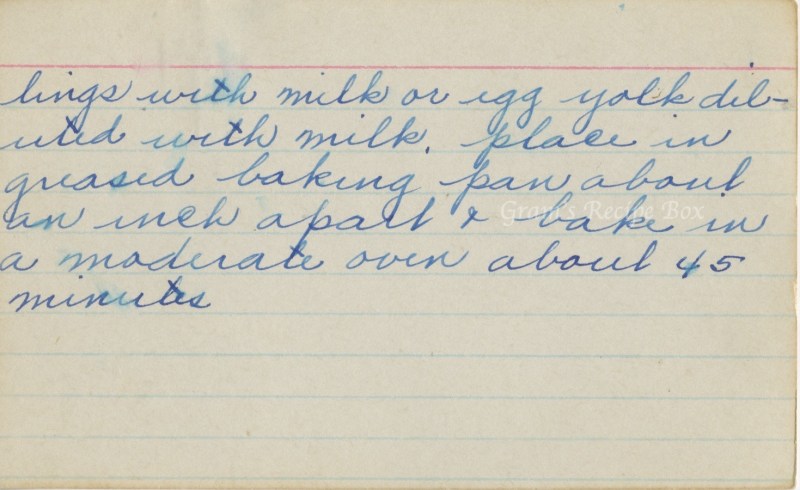 lings with milk or egg yolk dil-
uted with milk. place in
greased baking pan about
an inch apart & bake in
Gram's Recipe Box
a moderate oven about 45
minutes